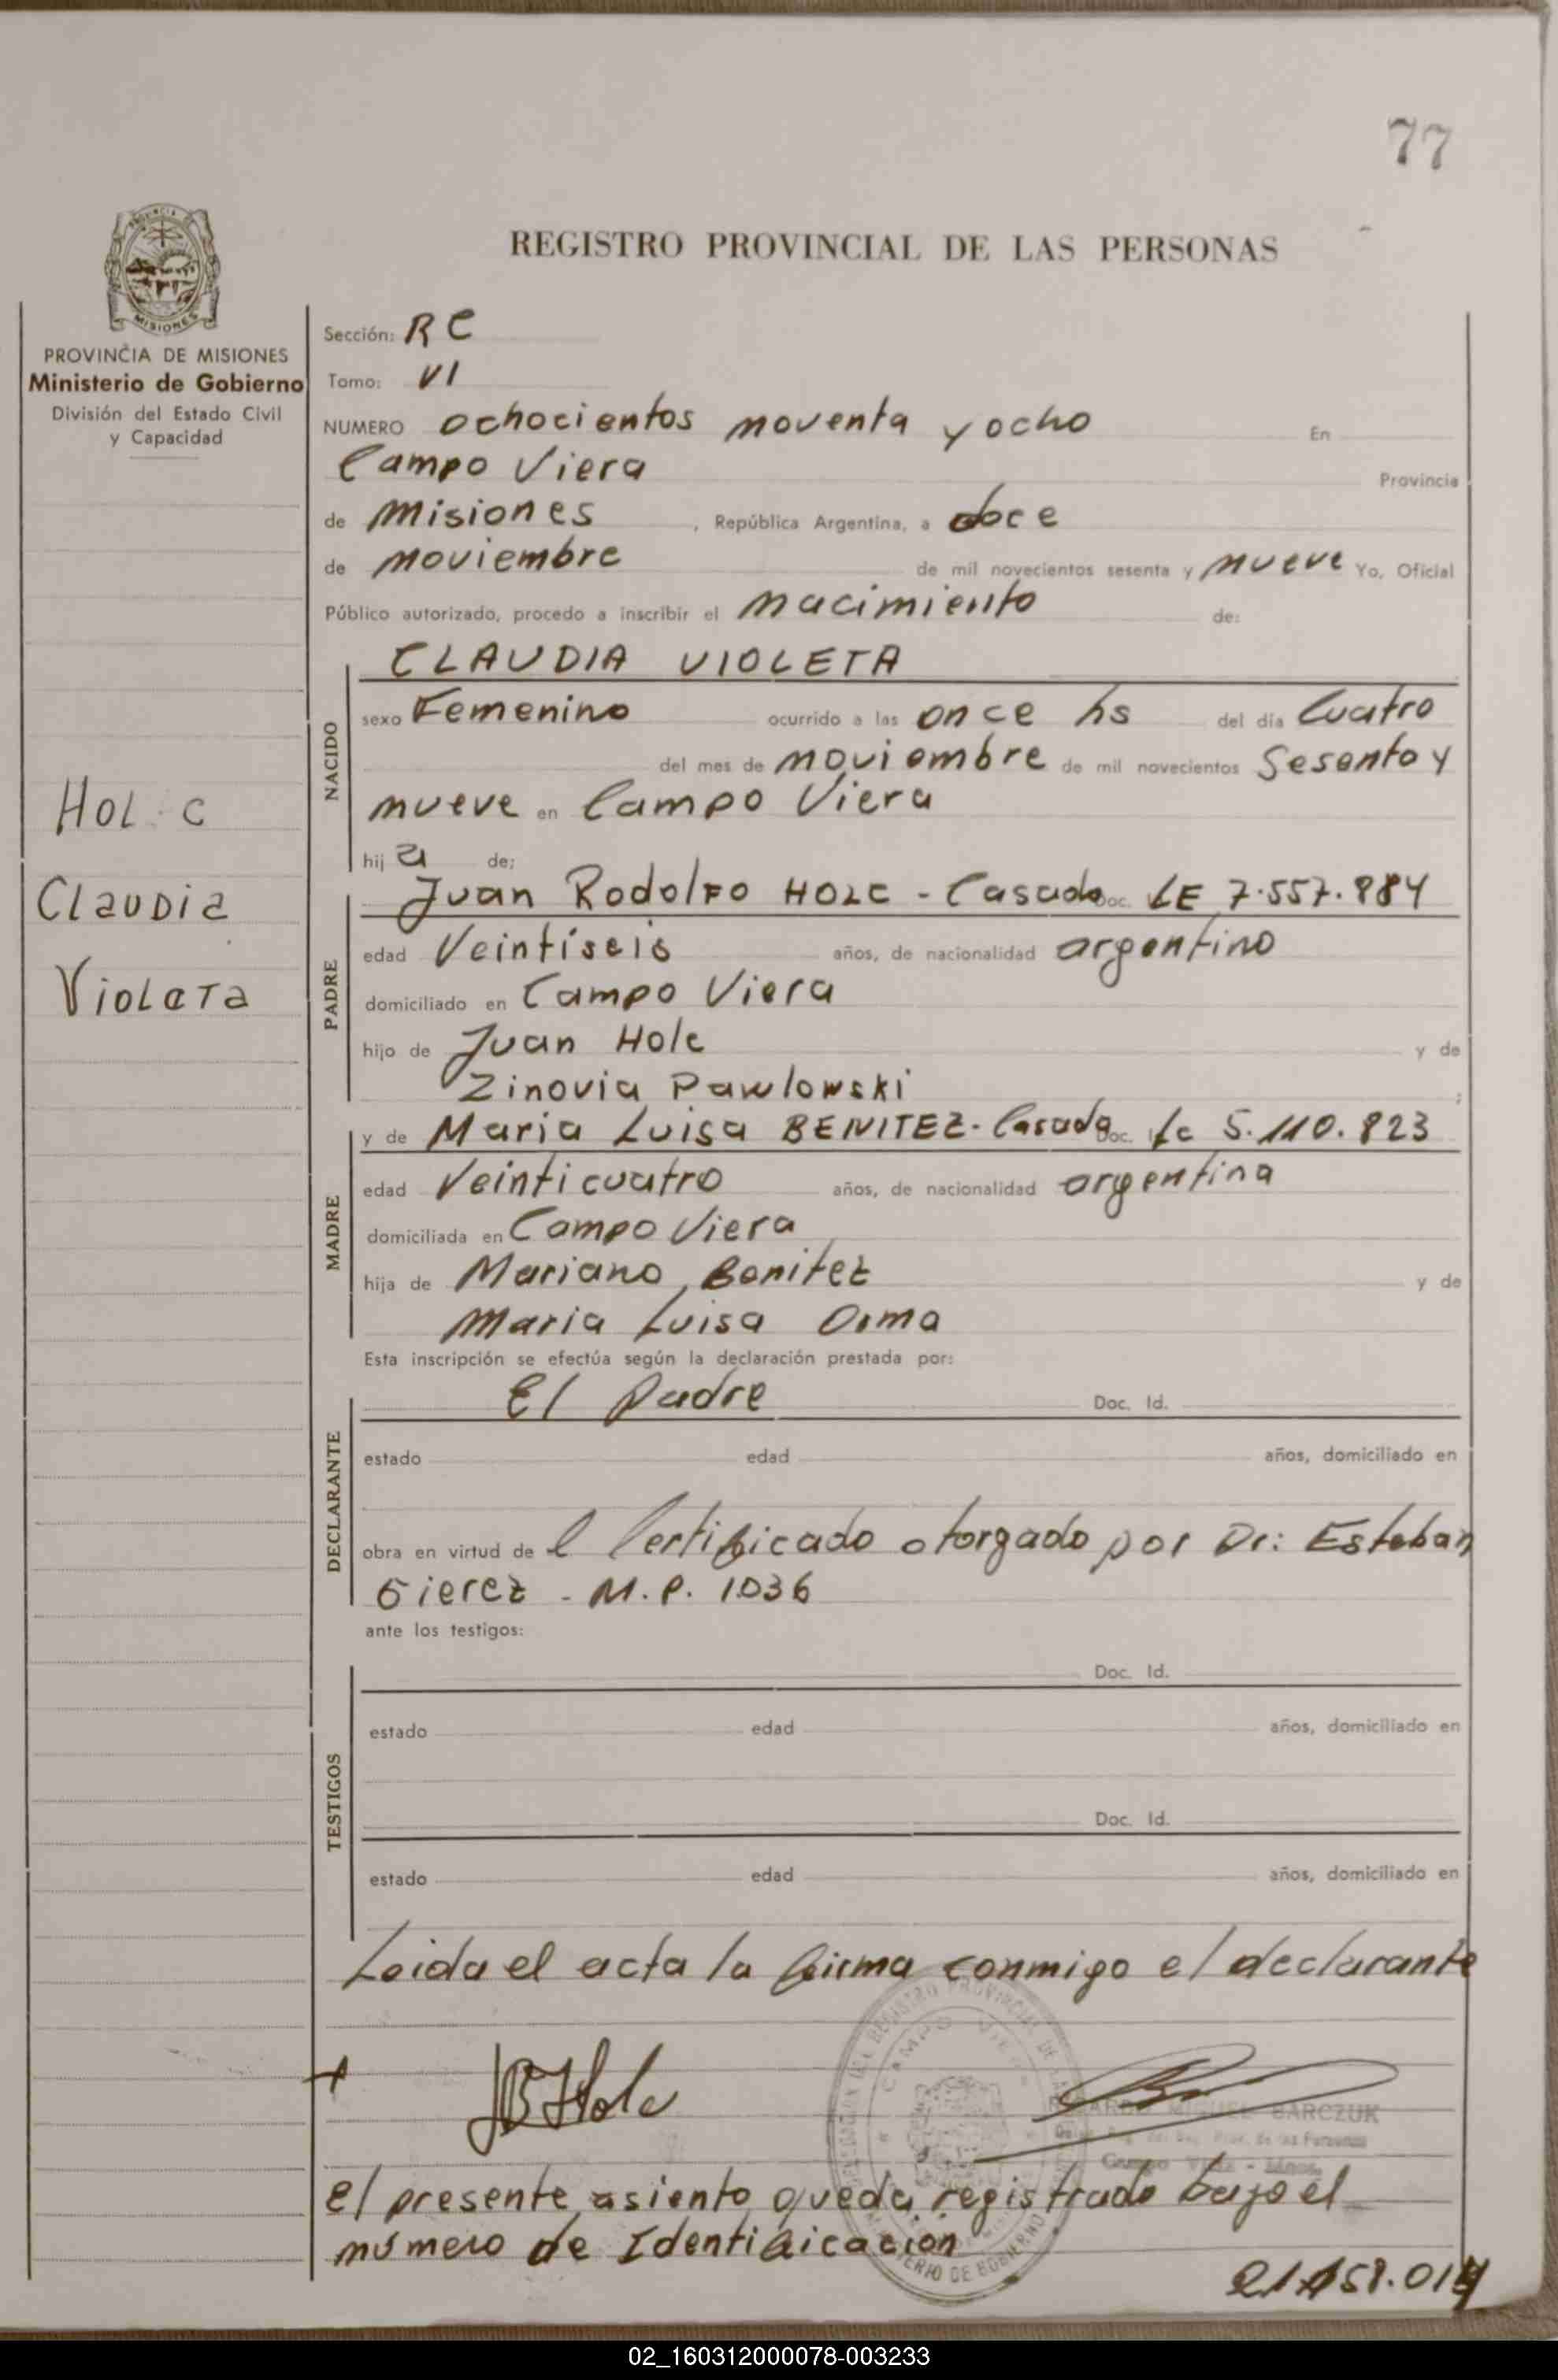 77
REGISTRO PROVINCIAL DE LAS PERSONAS
PROVINCIA DE
MISIONES
PROVINCIA DE MISIONES
Ministerio de Gobierno
División del Estado Civil
y Capacidad
HOLC
Claudia
Violeta
Sección: RC
Tomo: VI
NUMERO ochocientos noventa y ocho En
Campo Viera Provincia
de Misiones , República Argentina, a doce
de noviembre de mil novecientos sesenta y nueve Yo, Oficial
Público autorizado, procedo a inscribir el nacimiento de:
NACIDO
CLAUDIA VIOLETA
sexo Femenino ocurrido a las once hs del día Cuatro
del mes de noviembre de mil novecientos Sesenta y
nueve en Campo Viera
hij a de:
PADRE
Juan Rodolfo HOLC - Casado Doc. LE 7.557.884
edad Veintiseis años, de nacionalidad argentino
domiciliado en Campo Viera
hijo de Juan Holc y de
Zinovia Pawlowski ;
MADRE
y de Maria Luisa BENITEZ - Casada Doc. Lc 5.110.823
edad Veinticuatro años, de nacionalidad argentina
domiciliada en Campo Viera
hija de Mariano Benitez y de
Maria Luisa
Esta inscripción se efectúa según la declaración prestada por:
DECLARANTE
El Padre Doc. Id.
estado edad años, domiciliado en
obra en virtud de l Certificado otorgado por Dr: Esteban
Gierez - M.P. 1036
ante los testigos:
TESTIGOS
Doc. Id.
estado edad años, domiciliado en
Doc. Id.
estado edad años, domiciliado en
Leida el acta la firma conmigo el declarante
Holc
MIGUEL BARCZUK
de las Personas
Campo Viera - Mnes.
el presente asiento queda registrado bajo el
número de Identificación